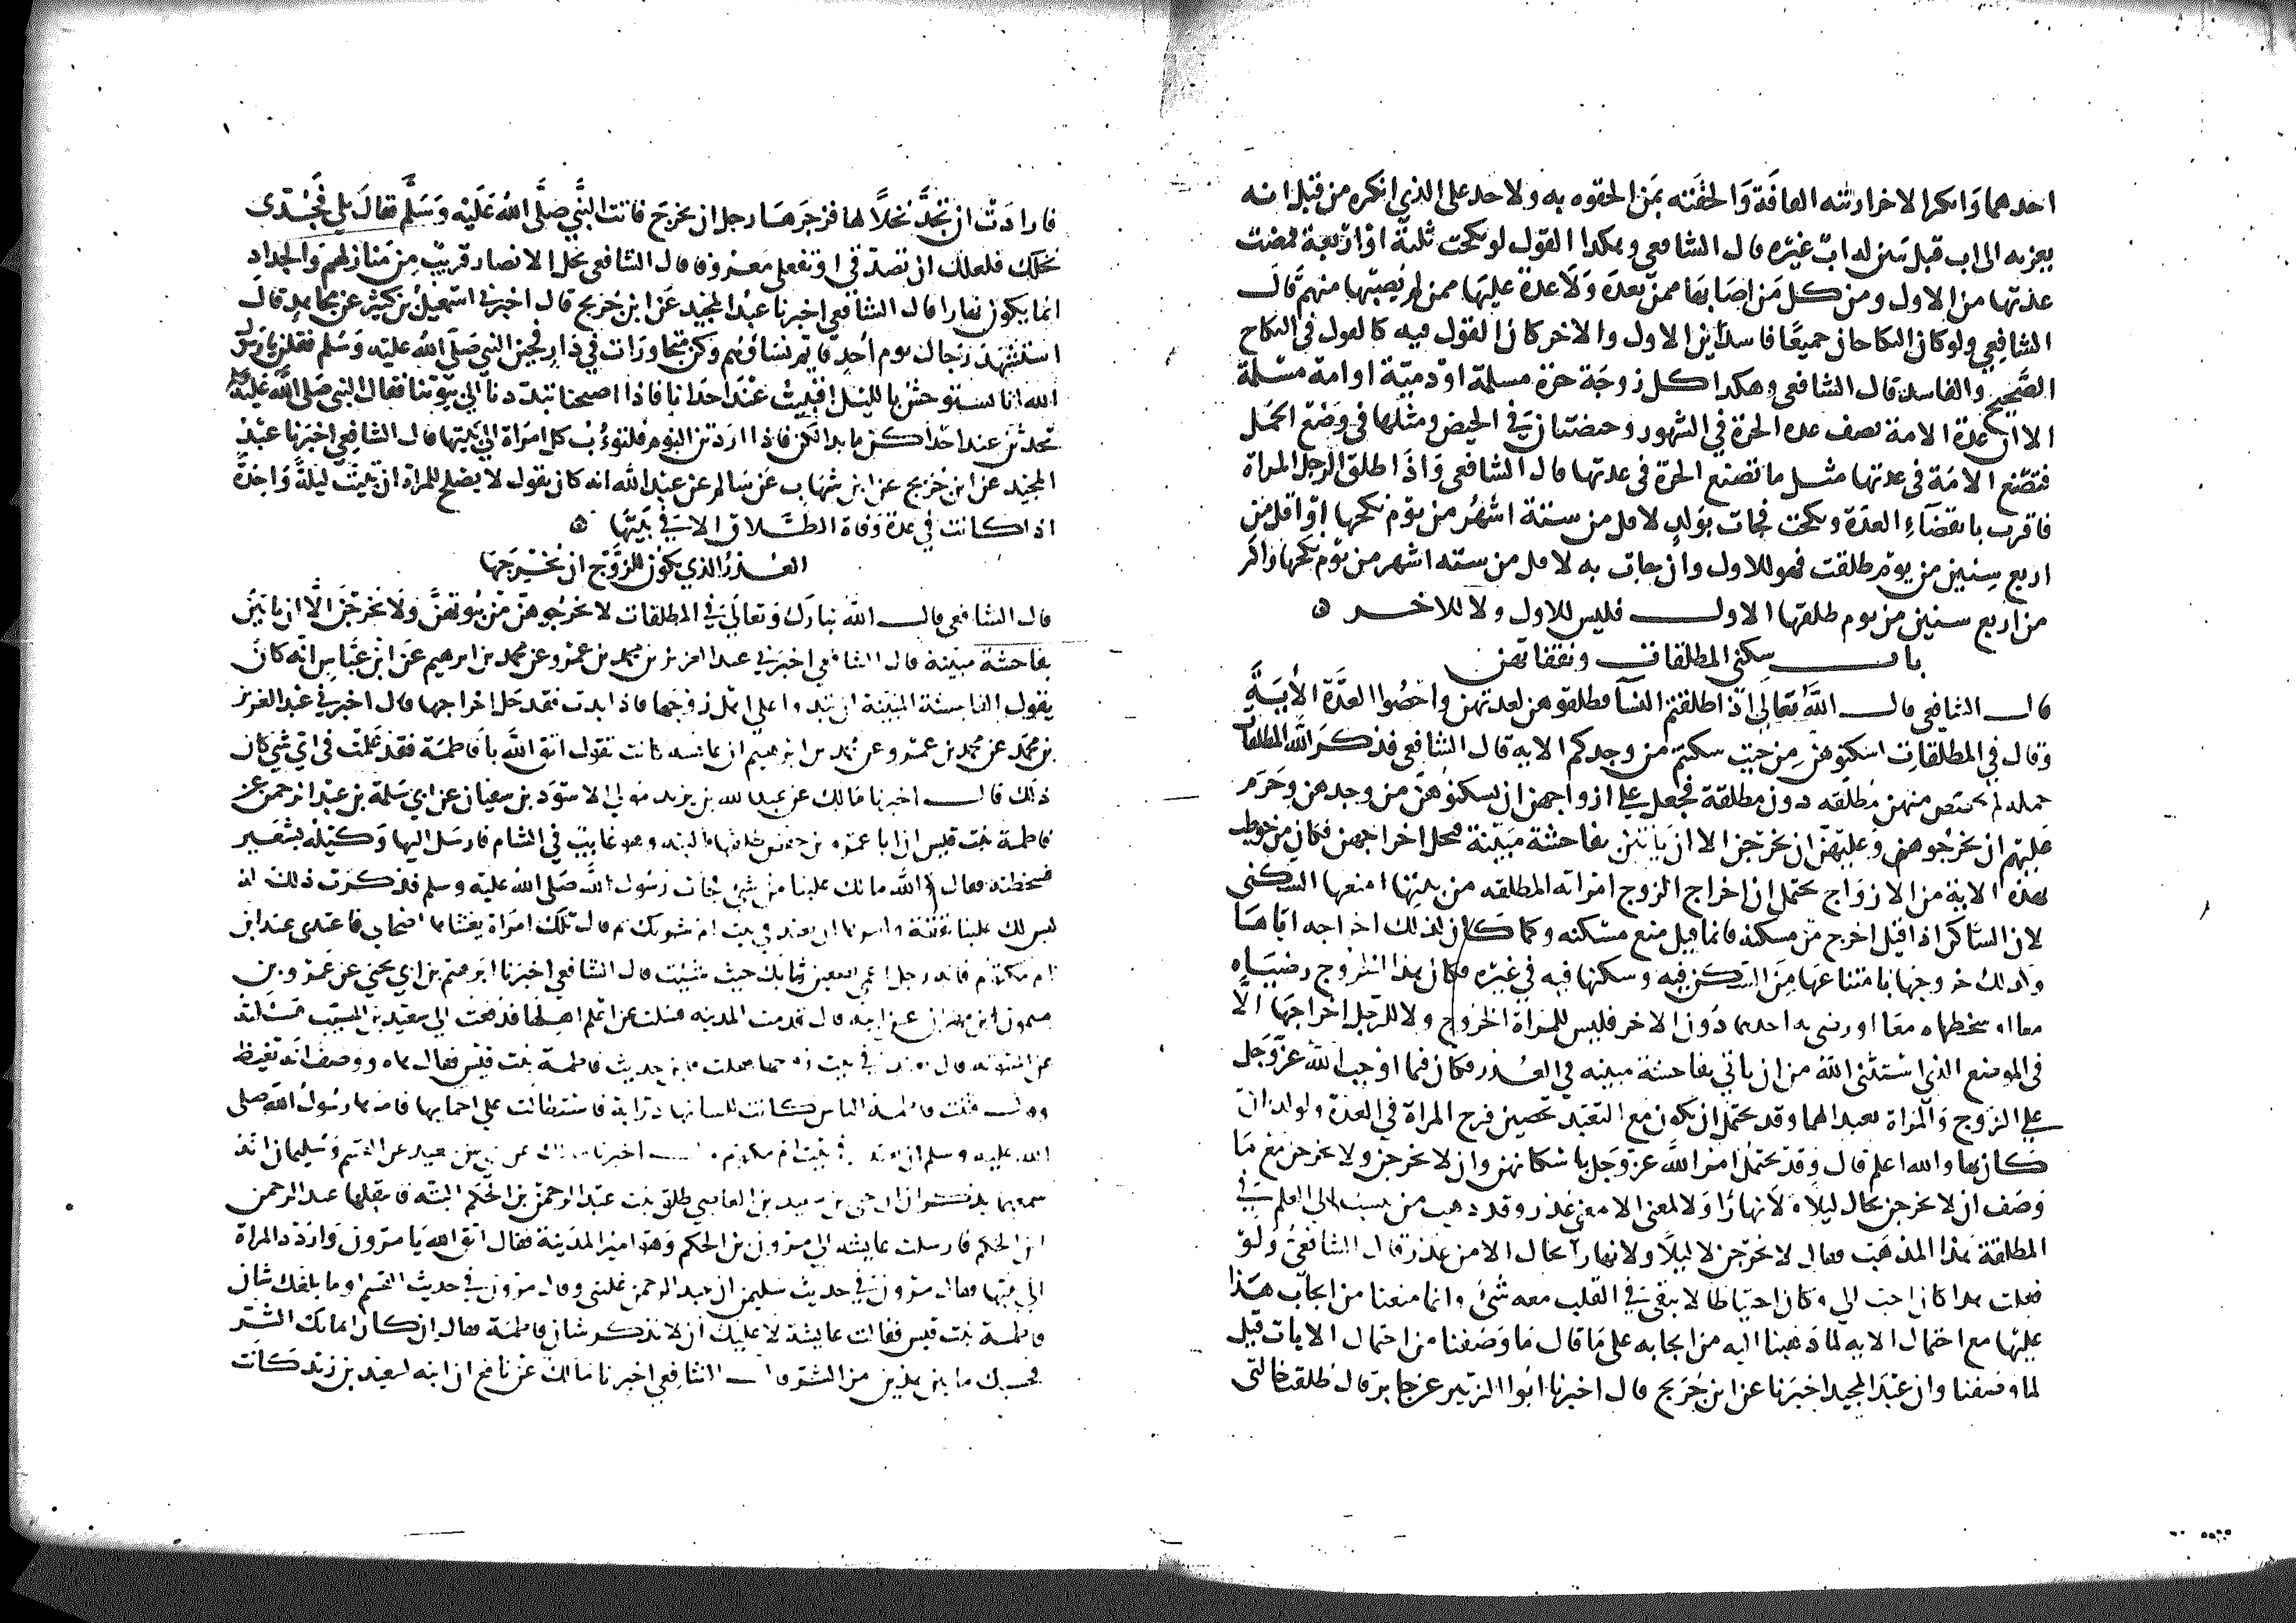 احدهما وانكرا لاخر ارئته القافة والحقته بمن الحقوه به ولا حد على الذي انكره من قبل انه
يعزيه الى اب قبل يتبين له اب غيره قال الشافعي وهكذا القول لو نكحت ثلثة او اربعة فمضت
عدتها من الاول ومن كل من اصابها ممن بعده ولا عدة عليها ممن لم يصبها منهم قال
الشافعي ولو كان النكاحان جميعا فاسدا من الاول والاخر كان القول فيه كالقول في النكاح
الصحيح والفاسد قال الشافعي وهكذا كل زوجة حرة مسلمة او ذمية او امة مسلمة
الا ان عدة الامة نصف عدة الحرة في الشهور وحيضتان في الحيض ومثلها في وضع الحمل
فتصنع الامة في عدتها مثل ما تصنع الحرة في عدتها قال الشافعي واذا طلق الرجل المراة
فاقرت بانقضاء العدة ونكحت فجات بولد لاقل من ستة اشهر من يوم نكحها او اقل من
اربع سنين من يوم طلقت فهو للاول وان جات به لاقل من ستة اشهر من يوم نكحها واكثر
من اربع سنين من يوم طلقها الاول فليس للاول ولا للاخر
باب سكنى المطلقات ونفقاتهن
قال الشافعي قال الله تعالى اذا طلقتم النسا فطلقوهن لعدتهن واحصوا العدة الاية
وقال في المطلقات اسكنوهن من حيث سكنتم من وجدكم الاية قال الشافعي فذكر الله المطلقات
جملة لم يخصص منهن مطلقة دون مطلقة فجعل على ازواجهن ان يسكنوهن من وجدهن وحرم
عليهم ان يخرجوهن وعليهن ان يخرجن الا ان ياتين بفاحشة مبينة فيحل اخراجهن فكان من خوطب
بهذه الاية من الازواج يحتمل ان اخراج الزوج امراته المطلقة من بيتها امنعها السكنى
لان الساكن اذا قيل اخرج من مسكنه فانما قيل منع مسكنه وكما كان كذلك اخراجه اياها
وكذلك خروجها بامتناعها من السكن فيه وسكنها فيه في غيره فكان هذا الخروج رضياه
معا او سخطاه معا او رضي به احدهما دون الاخر فليس للمراة الخروج ولا للرجل اخراجها الا
في الموضع الذي استثنى الله من ان ياتي بفاحشة مبينة في العذر فكان فيما اوجب الله عز وجل
على الزوج والمراة تعبد لهما وقد يحتمل ان يكون مع التعبد تحصين فرج المراة في العدة وولد ان
كان بها والله اعلم قال وقد يحتمل امر الله عز وجل باسكانهن وان لا يخرجن ولا يخرجن مع ما
وصف ان لا يخرجن بحال ليلا ولا نهارا ولا لمعنى الا معنى عذر وقد ذهب من ينسب الى العلم في
المطلقة هذا المذهب فقال لا يخرجن لا ليلا ولا نهارا بحال الا من عذر قال الشافعي ولو
فعلت هذا كان احب الي وكان احتياطا لا يبقى في القلب معه شئ وانما منعنا من ايجاب هذا
عليها مع احتمال الاية لما ذهبنا اليه من ايجابه على ما قال ما وصفنا من احتمال الايات قبل
لما وصفنا وان عبد المجيد اخبرنا عن ابن جريج قال اخبرنا ابو الزبير عن جابر قال طلقت خالتي
فارادت ان تجد نخلا لها فزجرها رجل ان تخرج فاتت النبي صلى الله عليه وسلم فقال بلى فجدي
نخلك فلعلك ان تصدقي او تفعلي معروفا قال الشافعي نخل الانصار قريب من منازلهم والجداد
انما يكون نهارا قال الشافعي اخبرنا عبد المجيد عن ابن جريج قال اخبرني اسمعيل بن كثير عن مجاهد قال
استشهد رجال يوم احد فايم نساؤهم وكن متجاورات في دار فجئن النبي صلى الله عليه وسلم فقلن يا رسول
الله انا نستوحش بالليل افنبيت عند احدانا فاذا اصبحنا تبددنا الى بيوتنا فقال النبي صلى الله عليه وسلم
تحدثن عند احداكن ما بدا لكن فاذا اردتن النوم فلتؤب كل امراة الى بيتها قال الشافعي اخبرنا عبد
المجيد عن ابن جريج عن ابن شهاب عن سالم عن عبد الله انه كان يقول لا يصلح للمراة ان تبيت ليلة واحدة
اذا كانت في عدة وفاة الطلاق الا في بيتها
العذر الذي يكون للزوج ان يخرجها
قال الشافعي قال الله تبارك وتعالى في المطلقات لا تخرجوهن من بيوتهن ولا يخرجن الا ان ياتين
بفاحشة مبينة قال الشافعي اخبرني عبد العزيز بن محمد عن محمد بن عمرو عن محمد بن ابرهيم عن ابن عباس انه كان
يقول الفاحشة المبينة ان تبذوا على اهل زوجها فاذا بذت فقد حل اخراجها قال اخبرني عبد العزيز
بن محمد عن محمد بن عمرو عن محمد بن ابرهيم ان عائشة كانت تقول اتق الله يا فاطمة فقد علمت في اي شي كان
ذلك قال اخبرنا مالك عن عبد الله بن يزيد مولى الاسود بن سفيان عن ابي سلمة بن عبد الرحمن عن
فاطمة بنت قيس ان ابا عمرو بن حفص طلقها البتة وهو غايب في الشام فارسل اليها وكيله بشعير
فسخطته فقال والله مالك علينا من شئ فجات رسول الله صلى الله عليه وسلم فذكرت ذلك له
ليس لك علينا نفقة وامرها ان تعتد في بيت ام شريك ثم قال تلك امراة يغشاها اصحابي فاعتدي عند ابن
ام مكتوم فانه رجل اعمى تضعين ثيابك حيث شيت قال الشافعي اخبرنا ابرهيم بن ابي يحيي عن عمرو بن
ميمون ابن مهران عن ابيه قال قدمت المدينة فسالت عن اعلم اهلها فدفعت الى سعيد بن المسيب فسالته
عن المبتوتة قال تعتد في بيت زوجها فقلت فاين حديث فاطمة بنت قيس فقال هاه ووصف انه تغيظ
وقال فتنت فاطمة الناس كانت للسانها ذرابة فاستطالت على احمايها فامرها رسول الله صلى
الله عليه وسلم ان تعتد في بيت ام مكتوم قال اخبرنا مالك عن يحيى بن سعيد عن القسم وسليمان انه
سمعهما يذكران ان يحيى بن سعيد بن العاصي طلق بنت عبد الرحمن بن الحكم البتة فانتقلها عبد الرحمن
ابن الحكم فارسلت عايشة الى مروان بن الحكم وهو امير المدينة فقال اتق الله يا مرون واردد المراة
الى بيتها فقال مرون في حديث سليمن ان عبد الرحمن غلبني وقال مرون في حديث القسم او ما بلغك شان
فاطمة بنت قيس فقالت عايشة لا عليك ان لا تذكر شان فاطمة فقال ان كان انما بك الشر
فحسبك ما بين هذين من الشر قال الشافعي اخبرنا مالك عن نافع ان ابنة لسعيد بن زيد كانت